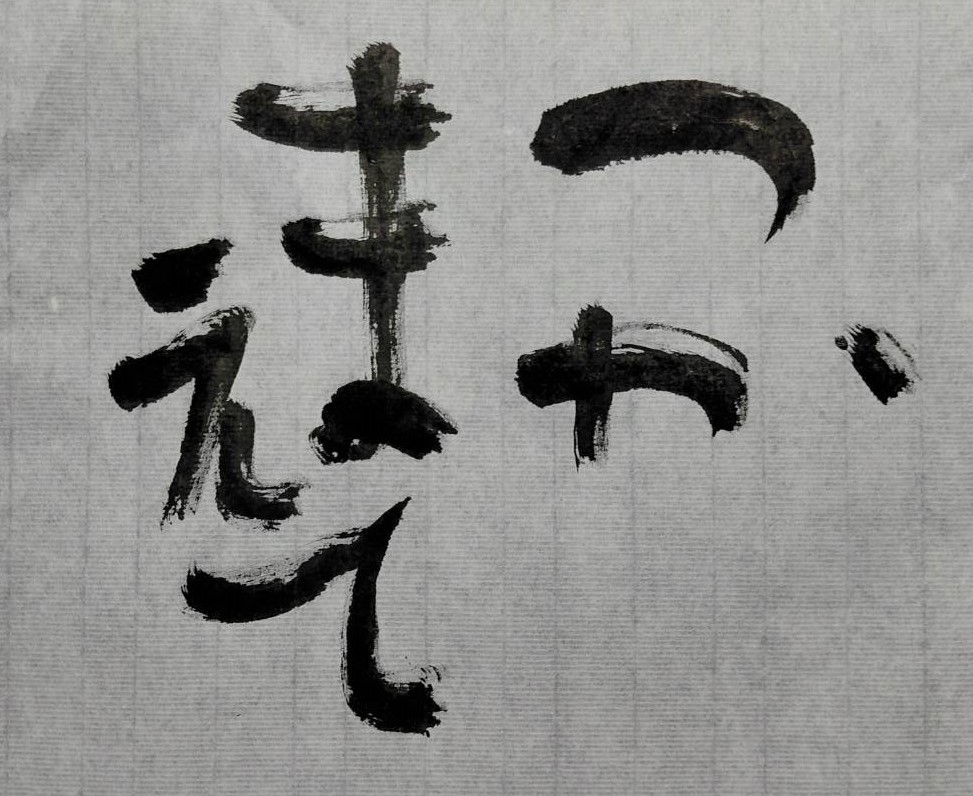 つか
まえて